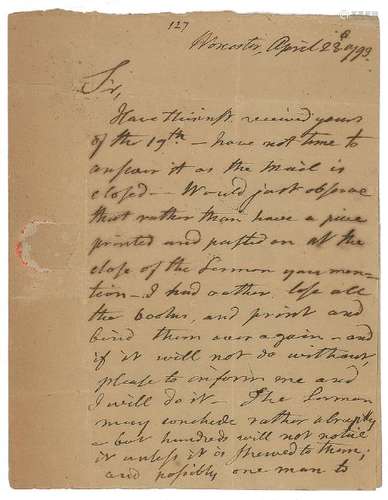 127
Worcester, April 23d 1793
Sir,
Have this inst. received yours
of the 19th – have not time to
answer it as the Mail is
closed – Would just observe
that rather than have a piece
printed and pasted on at the
close of the Sermon you men-
tion – I had rather lose all
the books, and print and
bind them over again – and
if it will not do without,
please to inform me and
I will do it – The Sermon
may conclude rather abruptly
a but hundreds will not notice
it unless it is shewed to them;
and possibly one man to